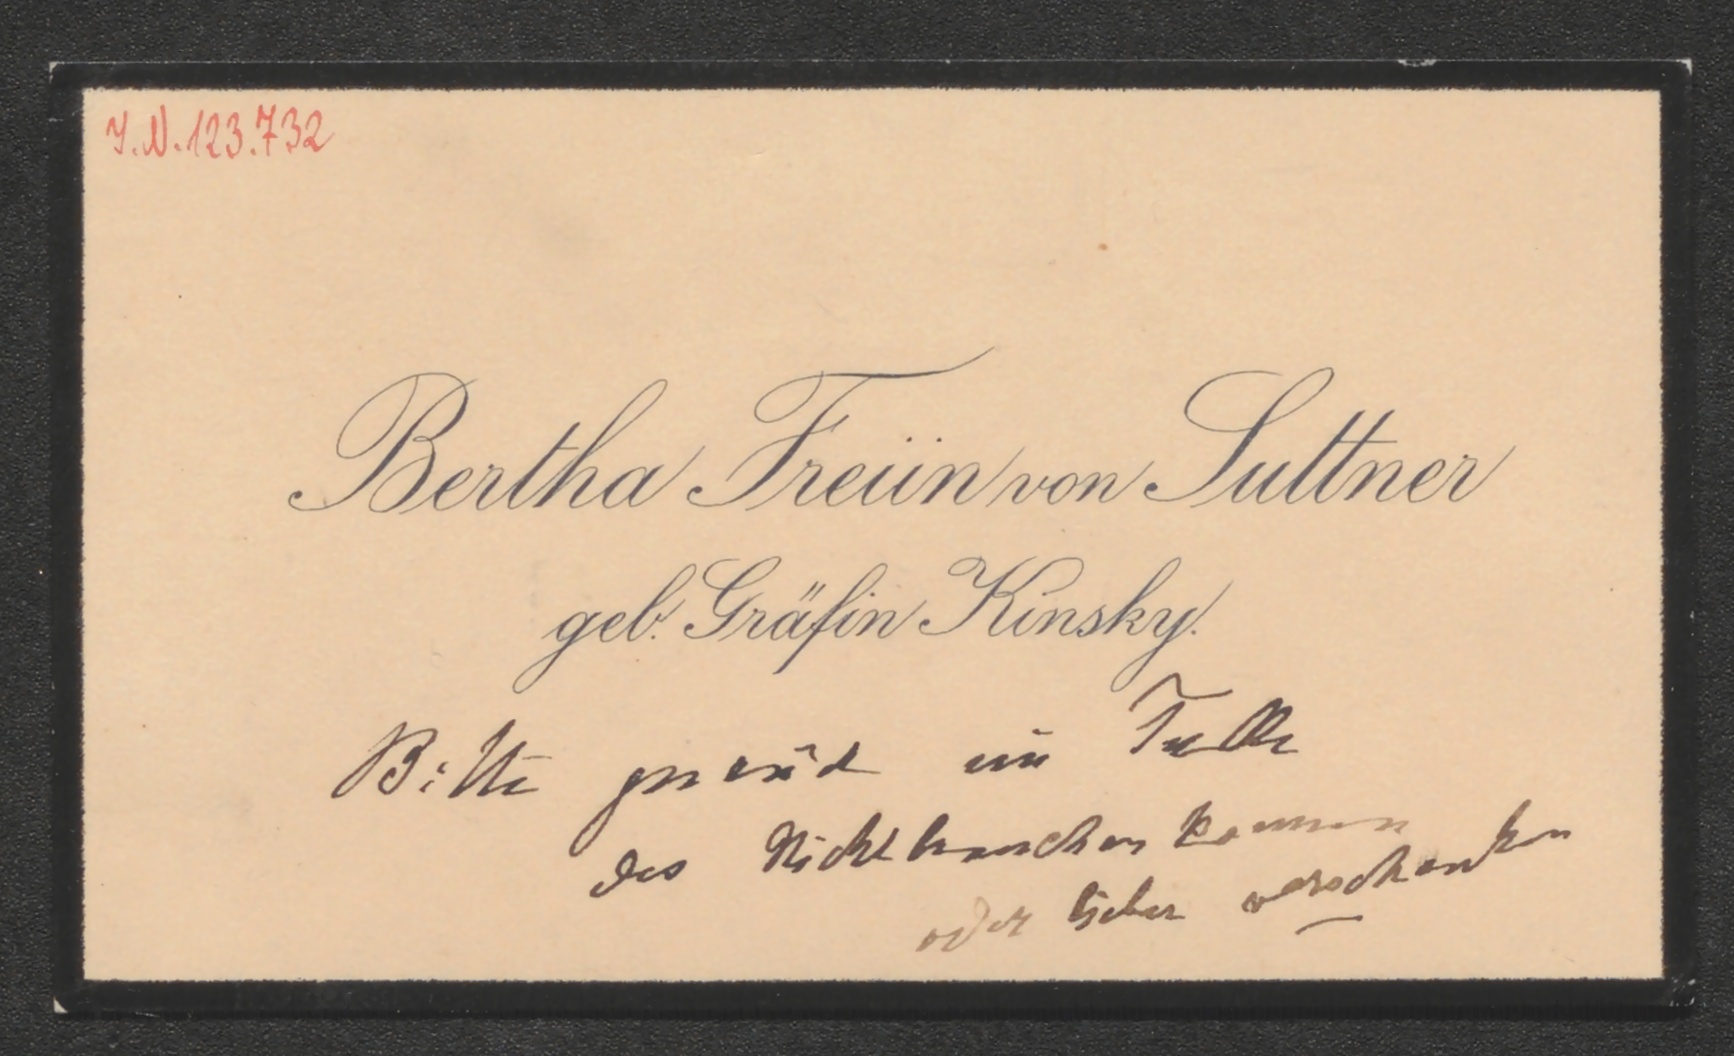 J.N. 123.732
Bertha Freiin von Suttner
geb. Gräfin Kinsky.
Bitte zurück im Falle
des Nichtbrauchen können
oder lieber verschenken